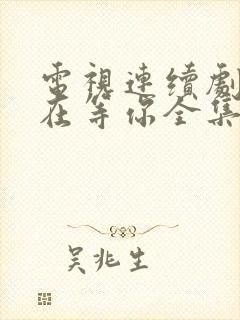 電視連續劇
在等你全集
吴兆生